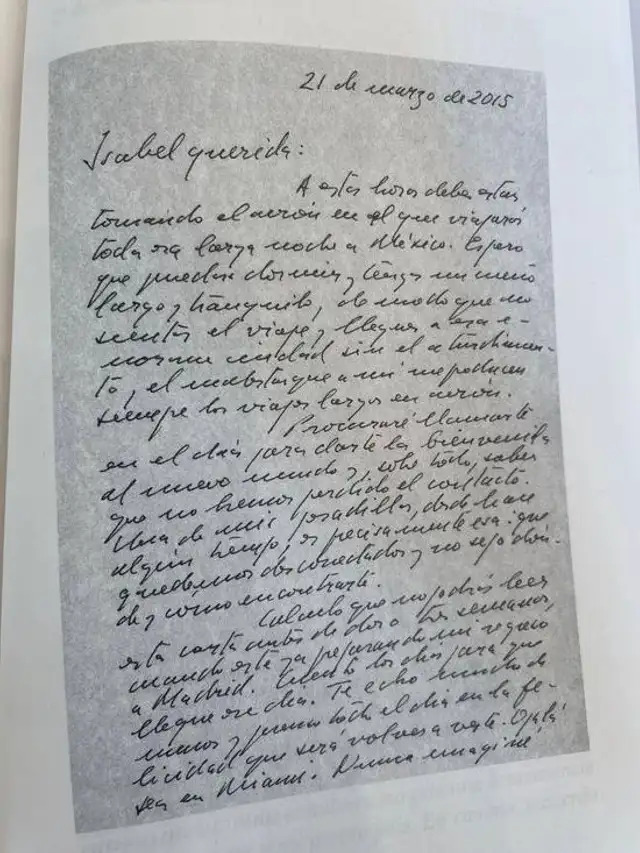 21 de marzo de 2015
Isabel querida:
A estas horas debes estar
tomando el avión en el que viajarás
toda esa larga noche a México. Espero
que puedas dormir y tengas un sueño
largo y tranquilo, de modo que no
sientas el viaje y llegues a esa e-
norme ciudad sin el aturdimien-
to, el malestar que a mí me producen
siempre los viajes largos en avión.
Procuraré llamarte
en el día para darte la bienvenida
al nuevo mundo y, sobre todo, saber
que no hemos perdido el contacto.
Una de mis pesadillas, desde hace
algún tiempo, es precisamente esa: que
quedemos desconectados y no sepa dón-
de y cómo encontrarte.
Calculo que no podrás leer
esta carta antes de dos o tres semanas,
cuando esté ya preparando mi regreso
a Madrid. Cuento los días para que
llegue ese día. Te echo mucho de
menos y pienso todo el día en la fe-
licidad que será volver a verte. Ojalá
sea en Miami. Nunca imaginé